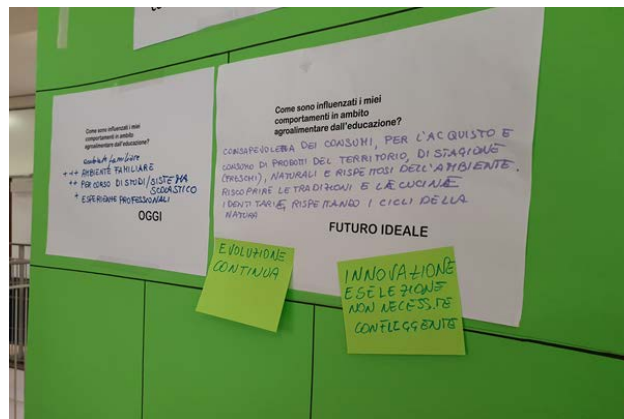 Come sono influenzati i miei
comportamenti in ambito
agroalimentare dall'educazione?
ambiente familiare
+++ AMBIENTE FAMILIARE
++ PERCORSO DI STUDI/SISTEMA
SCOLASTICO
+ ESPERIENZE PROFESSIONALI
OGGI
Come sono influenzati i miei
comportamenti in ambito
agroalimentare dall'educazione?
CONSAPEVOLEZZA DEI CONSUMI, PER L'ACQUISTO E
CONSUMO DI PRODOTTI DEL TERRITORIO, DI STAGIONE
(FRESCHI), NATURALI E RISPETTOSI DELL'AMBIENTE.
RISCOPRIRE LE TRADIZIONI E LE CUCINE
IDENTITARIE, RISPETTANDO I CICLI DELLA
NATURA
FUTURO IDEALE
EVOLUZIONE
CONTINUA
INNOVAZIONE
E SELEZIONE
NON NECESS.TE
CONFLIGGENTE